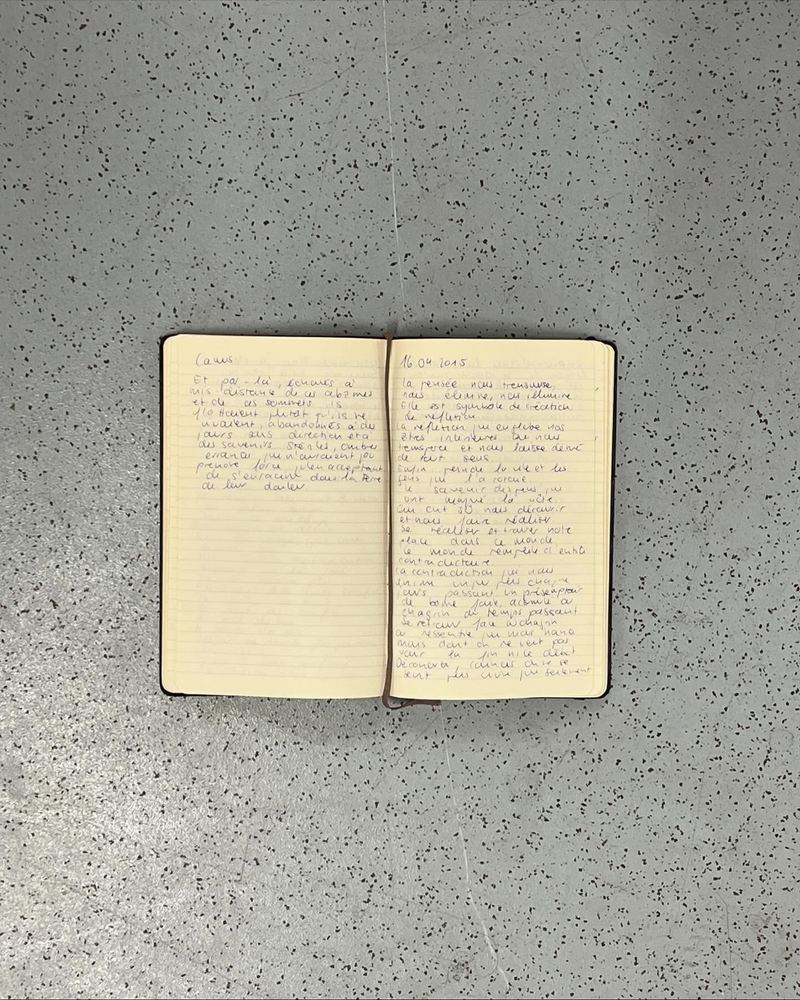 Camus
Et par-là, échoués à
mis distance de ces abîmes
et de ces sommets, ils
flottaient plutôt qu'ils ne
vivaient, abandonnés à des
jours sans direction et à
des souvenirs stériles, ombres
errantes qui n'auraient pu
prendre force qu'en acceptant
de s'enraciner dans la terre
de leur douleur
16 04 2015
la pensée nous transperse,
nous élimine, nous illumine.
Elle est symbole de création
de réflection.
la réflection qui englobe nos
êtres intérieures qui nous
transperce et nous laisse dénué
de tout sens
Enfin perinde la vie et les
gens qui l'a
le souvenir des gens qui
ont la nôtre.
Qui ont su nous découvrir
et nous faire réaliser
se réaliser et trouver notre
place dans ce monde
le monde remplie d'entité
contradictoire.
la contradiction qui nous
anime un peu plus chaque
jours passant un
de bonne foire, à
chagrin du temps passant
se retrouv face à chagrin
a ressentir
mais dont on ne voit pas
voir la fin ni le début
Découverte, on ne se
sent plus vivre que seulement